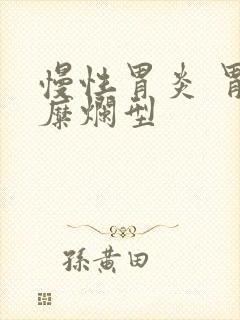 慢性胃炎 胃
糜爛型
孫黄田